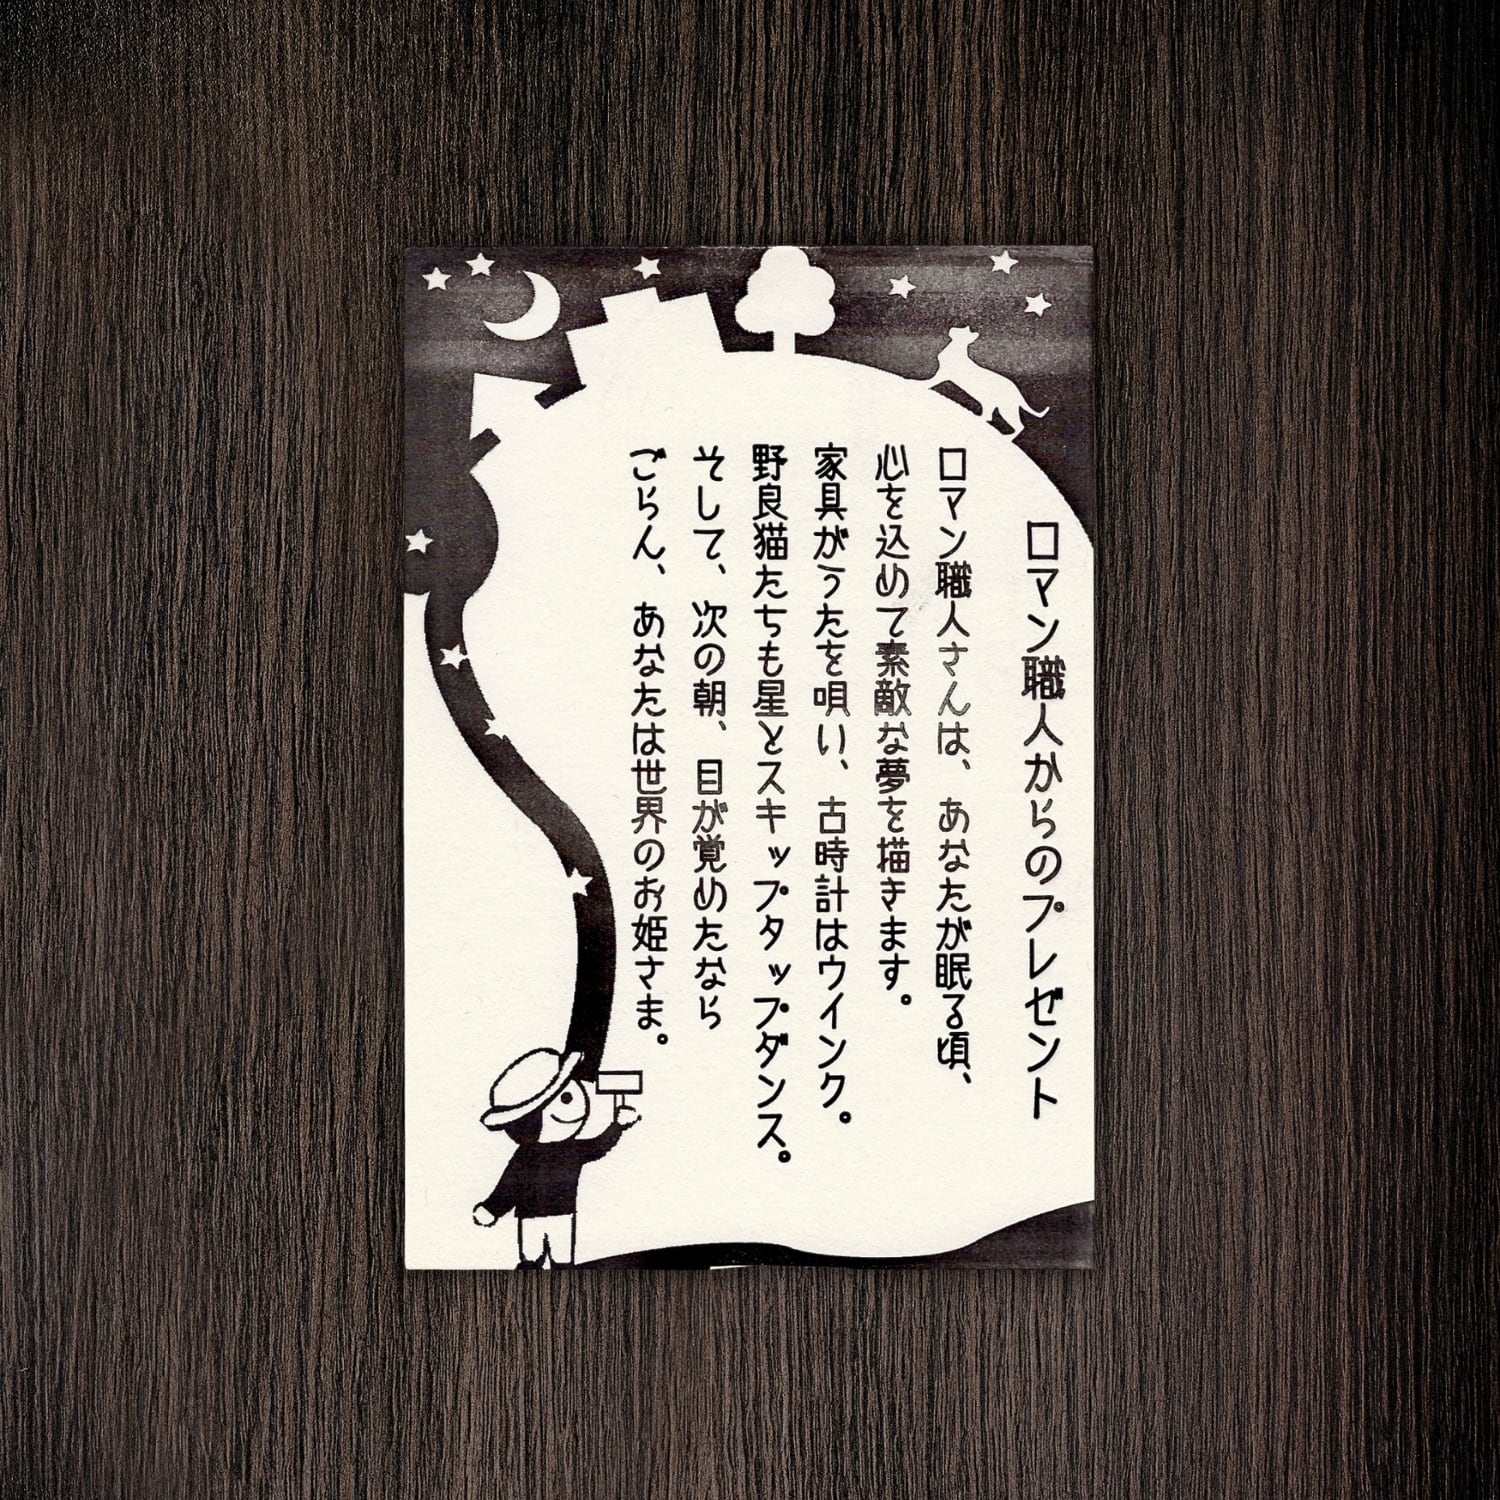 ロマン職人からのプレゼント
ロマン職人さんは、あなたが眠る頃、
心を込めて素敵な夢を描きます。
家具がうたを唄い、古時計はウインク。
野良猫たちも星とスキップタップダンス。
そして、次の朝、目が覚めたなら
ごらん、あなたは世界のお姫さま。